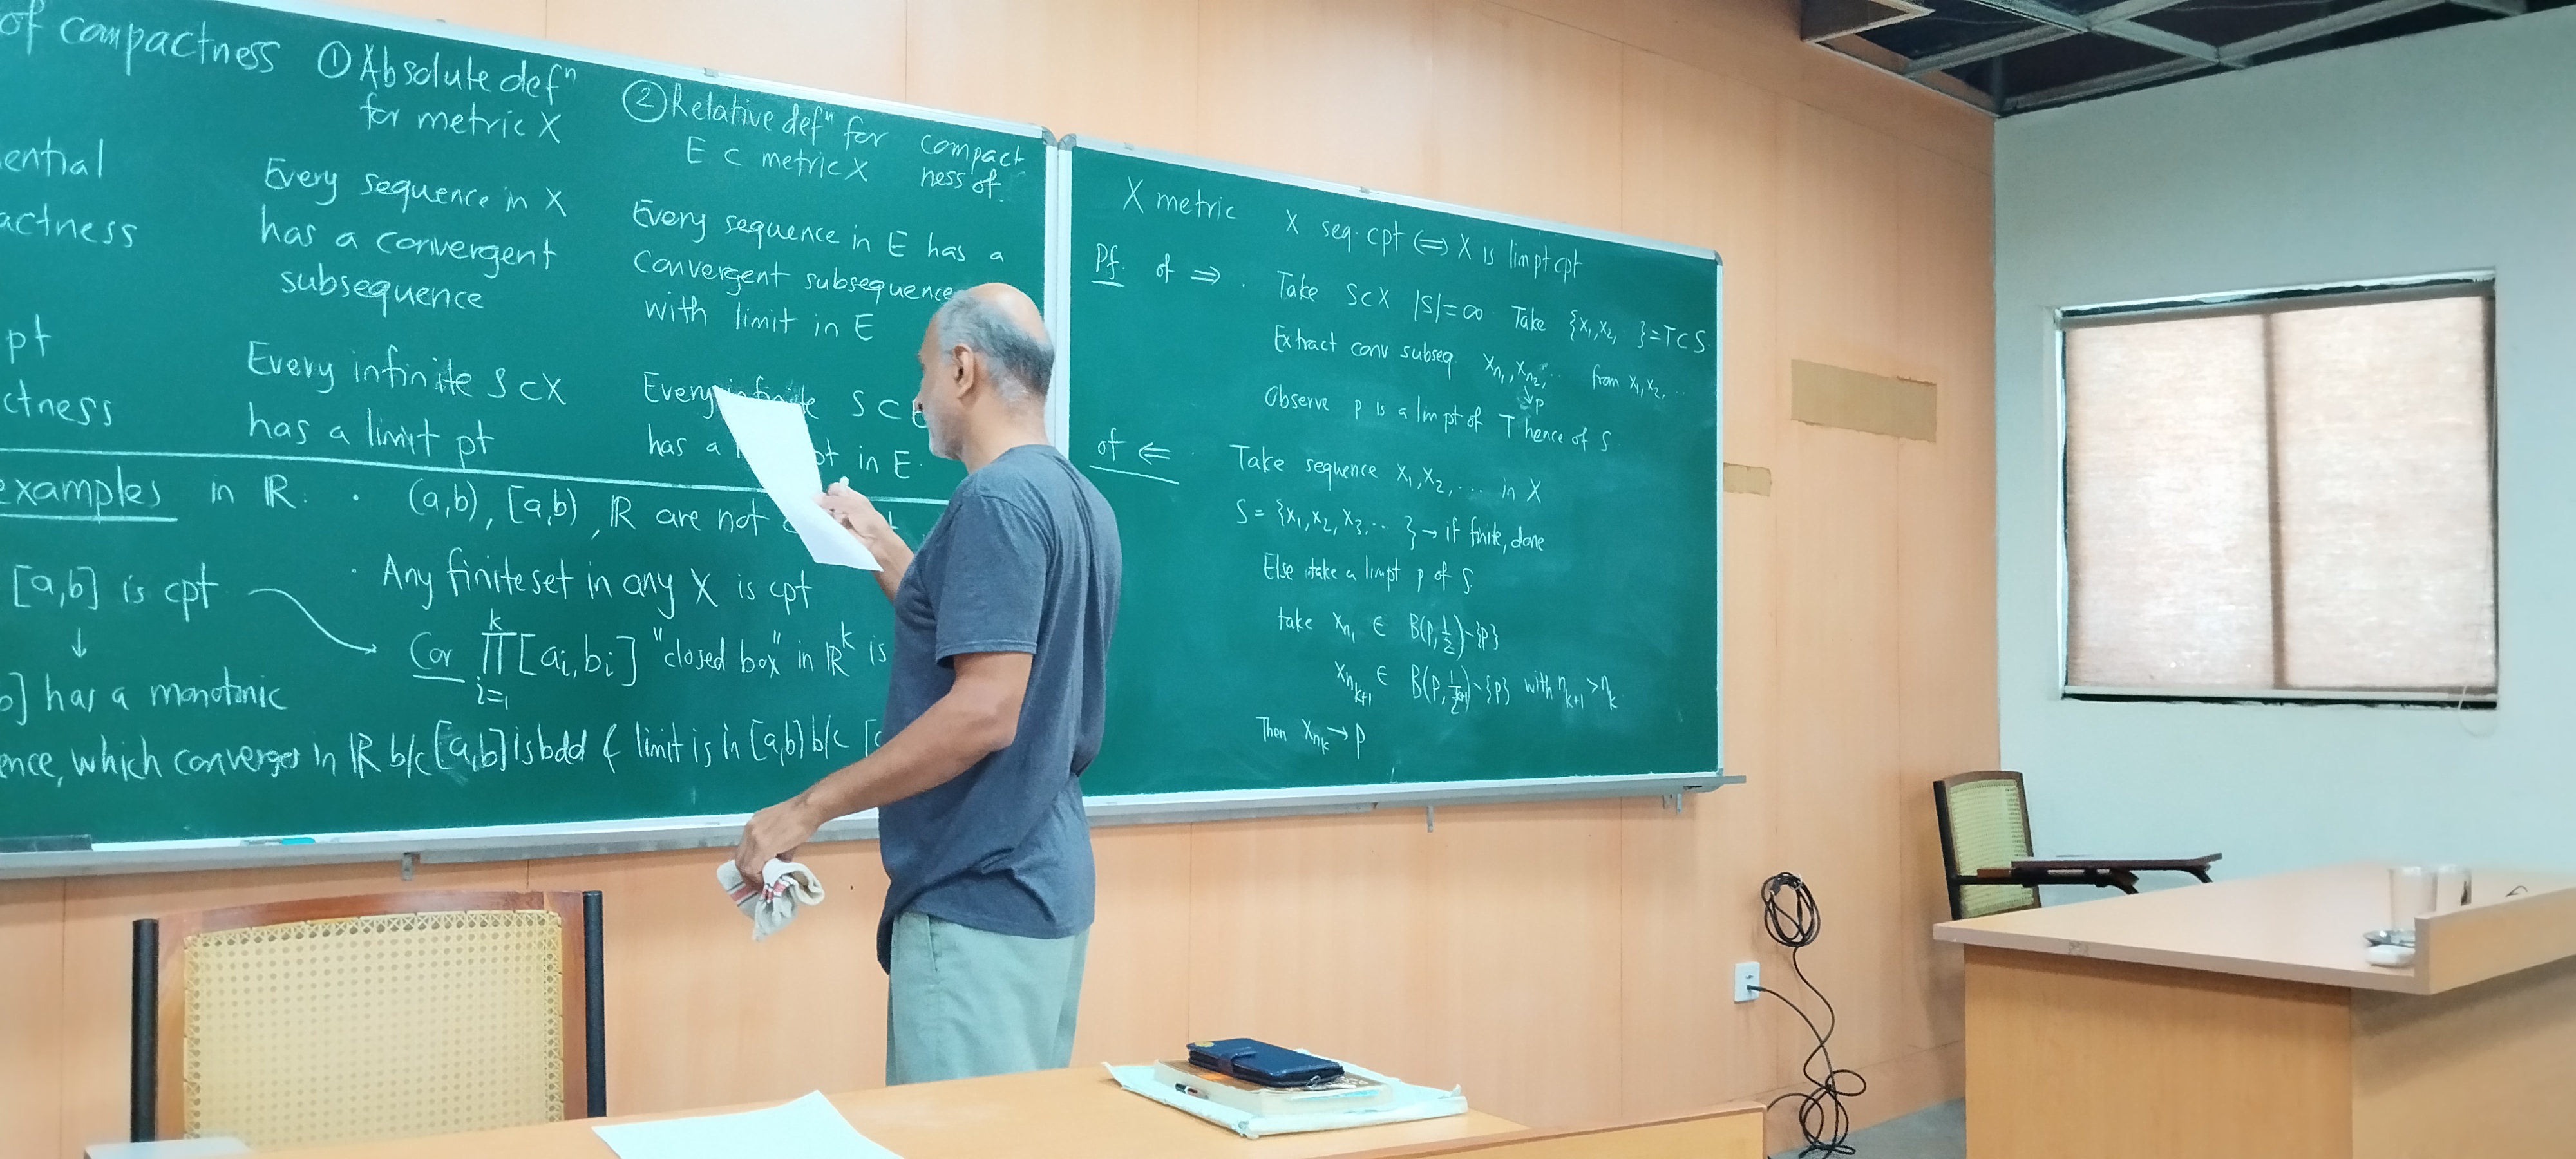 of compactness
① Absolute defⁿ
for metric X
② Relative defⁿ for compact
E ⊂ metric X ness of
ential
actness
Every sequence in X
has a convergent
subsequence
Every sequence in E has a
convergent subsequence
with limit in E
pt
ctness
Every infinite S⊂X
has a limit pt
Every infinite S ⊂
has a pt in E.
examples in ℝ. · (a,b), [a,b), ℝ are not
· Any finite set in any X is cpt
[a,b] is cpt
↓
Cor ∏_{i=1}^{k} [aᵢ,bᵢ] "closed box" in ℝᵏ is
b] has a monotonic
ence, which converges in ℝ b/c [a,b] is bdd & limit is in [a,b] b/c [
X metric X seq. cpt ⟺ X is lim pt cpt
Pf. of ⇒. Take S⊂X |S|=∞ Take {x₁,x₂, }=T⊂S.
Extract conv subseq x_{n₁},x_{n₂},... from x₁,x₂,...
↓p
Observe p is a lim pt of T hence of S
of ⇐ Take sequence x₁,x₂,... in X
S = {x₁,x₂,x₃,... } → if finite, done
Else take a lim pt p of S.
take x_{n₁} ∈ B(p,1/2)-{p}
x_{n_{k+1}} ∈ B(p,1/2^{k+1})-{p} with n_{k+1}>n_k
Then x_{n_k}→p